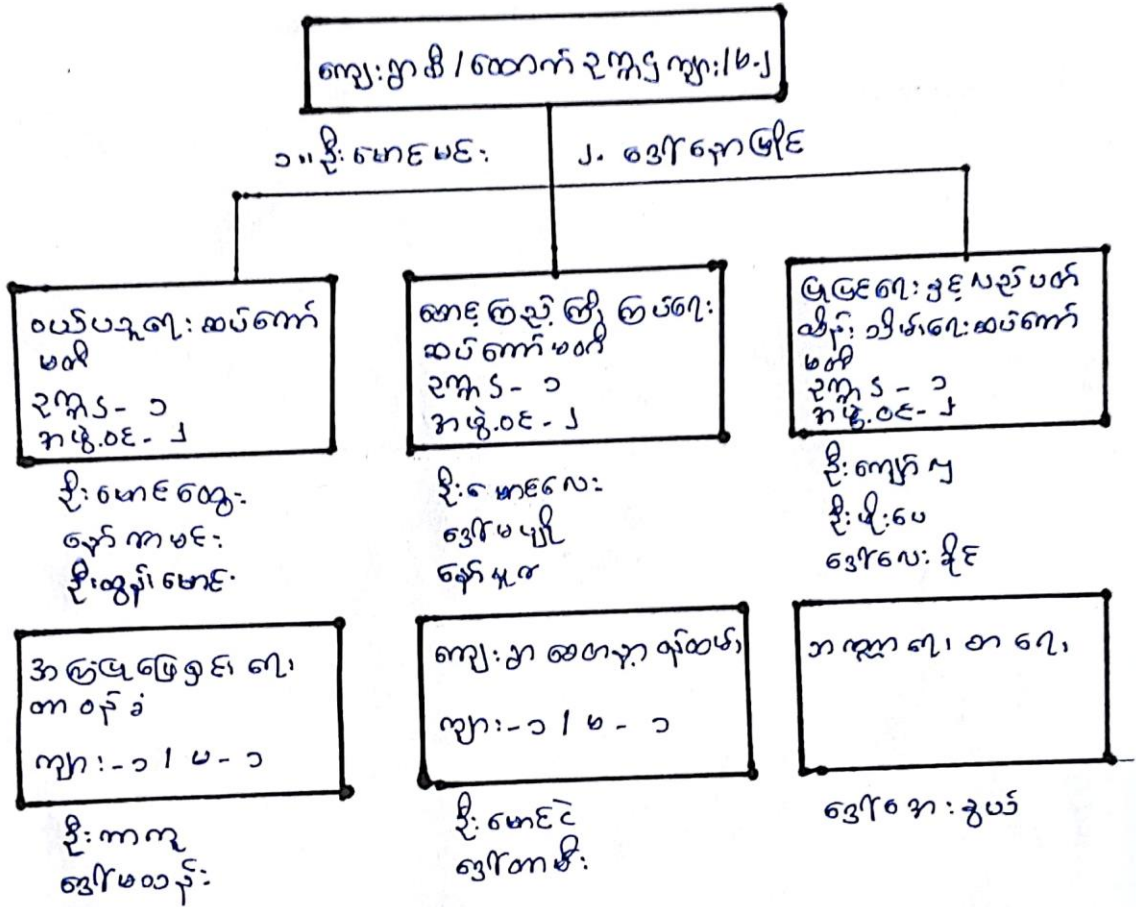 ကျေးရွာစီ / ထောက် ဥက္ကဌ ကျား/မ-၂
၁။ ဦးမောင်မင်း
၂. ဒေါ်နောမြိုင်
ဝယ်ပူရေးဆပ်ကော်
မတီ
ဥက္ကဌ - ၁
အဖွဲ့.ဝင် - ၂
ဦးမောင်ထွေး
နော်ကာမင်း
ဦးထွန်းမောင်
စောင့်ကြည့်ကြီးကြပ်ရေး
ဆပ်ကော်မတီ
ဥက္ကဌ - ၁
အဖွဲ့.ဝင် - ၂
ဦးမောင်လေး
ဒေါ်မပျို
နော်မူလ
ပြုပြင်ရေးနှင့်လည်ပတ်
ထိန်းသိမ်းရေးဆပ်ကော်
မတီ
ဥက္ကဌ - ၁
အဖွဲ့.ဝင် - ၂
ဦးကျော်လှ
ဦးဖိုးပေ
ဒေါ်လေးခိုင်
အကြံပြုဖြေရှင်းရေး
တာဝန်ခံ
ကျား - ၁ / မ - ၁
ဦးကာကူ
ဒေါ်မသန်း
ကျေးရွာစေတနာ့ဝန်ထမ်း
ကျား - ၁ / မ - ၁
ဦးမောင်ငဲ
ဒေါ်တာမီး
ဘဏ္ဍာရေး စာရေး
ဒေါ်အေးနွယ်